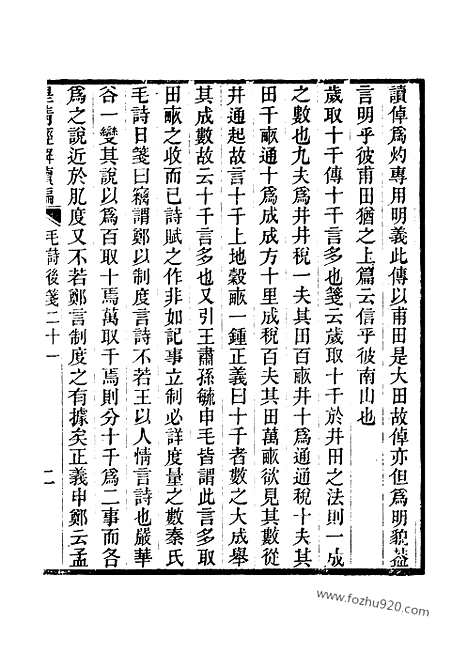 讀倬爲灼專用明義此傳以甫田是大田故倬亦但爲明貌益
言明乎彼甫田猶之上篇云信乎彼南山也
歲取十千傳十千言多也箋云歲取十千於井田之法則一成
之數也九夫爲井井稅一夫其田百畞井十爲通通稅十夫其
田千畞通十爲成成方十里成稅百夫其田萬畞欲見其數從
井通起故言十千上地穀畞一鍾正義曰十千者數之大成舉
其成數故云十千言多也又引王肅孫毓申毛皆謂此言多取
田畞之收而已詩賦之作非如記事立制必詳度量之數秦氏
毛詩日箋曰竊謂鄭以制度言詩不若王以人情言詩也嚴華
谷一變其說以爲百取十焉萬取千焉則分十千爲二事而各
爲之說近於肊度又不若鄭言制度之有據矣正義申鄭云孟
皇淸經解續編 毛詩後箋二十一 二
www.fozhu920.com